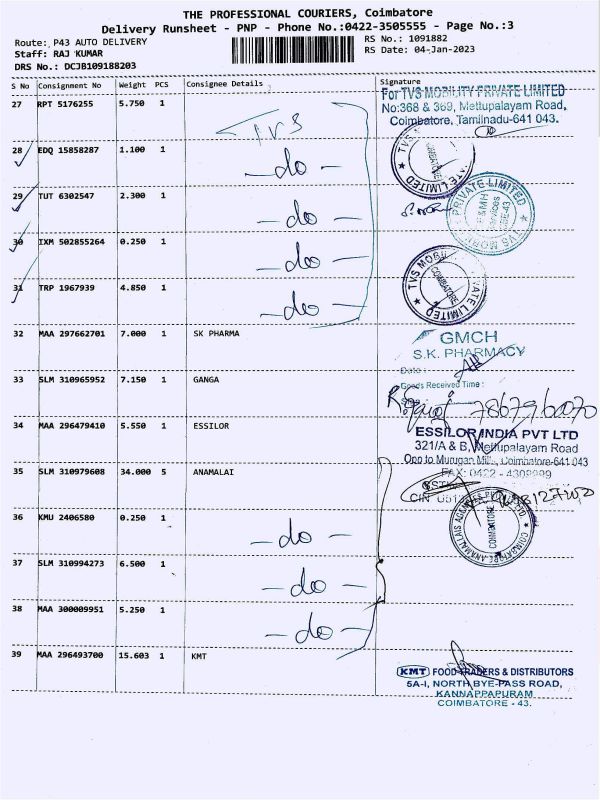 THE PROFESSIONAL COURIERS, Coimbatore
Delivery Runsheet - PNP - Phone No.:0422-3505555 - Page No.:3
Route: P43 AUTO DELIVERY
RS No.: 1091882
Staff: RAJ KUMAR
RS Date: 04-Jan-2023
DRS No.: DCJB109188203
S No Consignment No Weight PCS Consignee Details Signature
27 RPT 5176255 5.750 1 TVS
For TVS MOBILITY PRIVATE LIMITED
No:368 & 369, Mettupalayam Road,
Coimbatore, Tamilnadu-641 043.
28 EDQ 15858287 1.100 1 - do -
29 TUT 6302547 2.300 1 - do -
30 IXM 502855264 0.250 1 - do -
31 TRP 1967939 4.850 1 - do -
TVS MOBILITY PRIVATE LIMITED
COIMBATORE
32 MAA 297662701 7.000 1 SK PHARMA
GMCH
S.K. PHARMACY
Date:
33 SLM 310965952 7.150 1 GANGA
Goods Received Time :
7867796070
34 MAA 296479410 5.550 1 ESSILOR
ESSILOR INDIA PVT LTD
321/A & B, Mettupalayam Road
Opp to Murugan Mill, Coimbatore-641 043
35 SLM 310979608 34.000 5 ANAMALAI
FAX: 0422 - 4309999
36 KMU 2406580 0.250 1 - do -
COIMBATORE
37 SLM 310994273 6.500 1 - do -
38 MAA 300009951 5.250 1 - do -
39 MAA 296493700 15.603 1 KMT
KMT FOOD TRADERS & DISTRIBUTORS
5A-I, NORTH BYE-PASS ROAD,
KANNAPPAPURAM
COIMBATORE - 43.